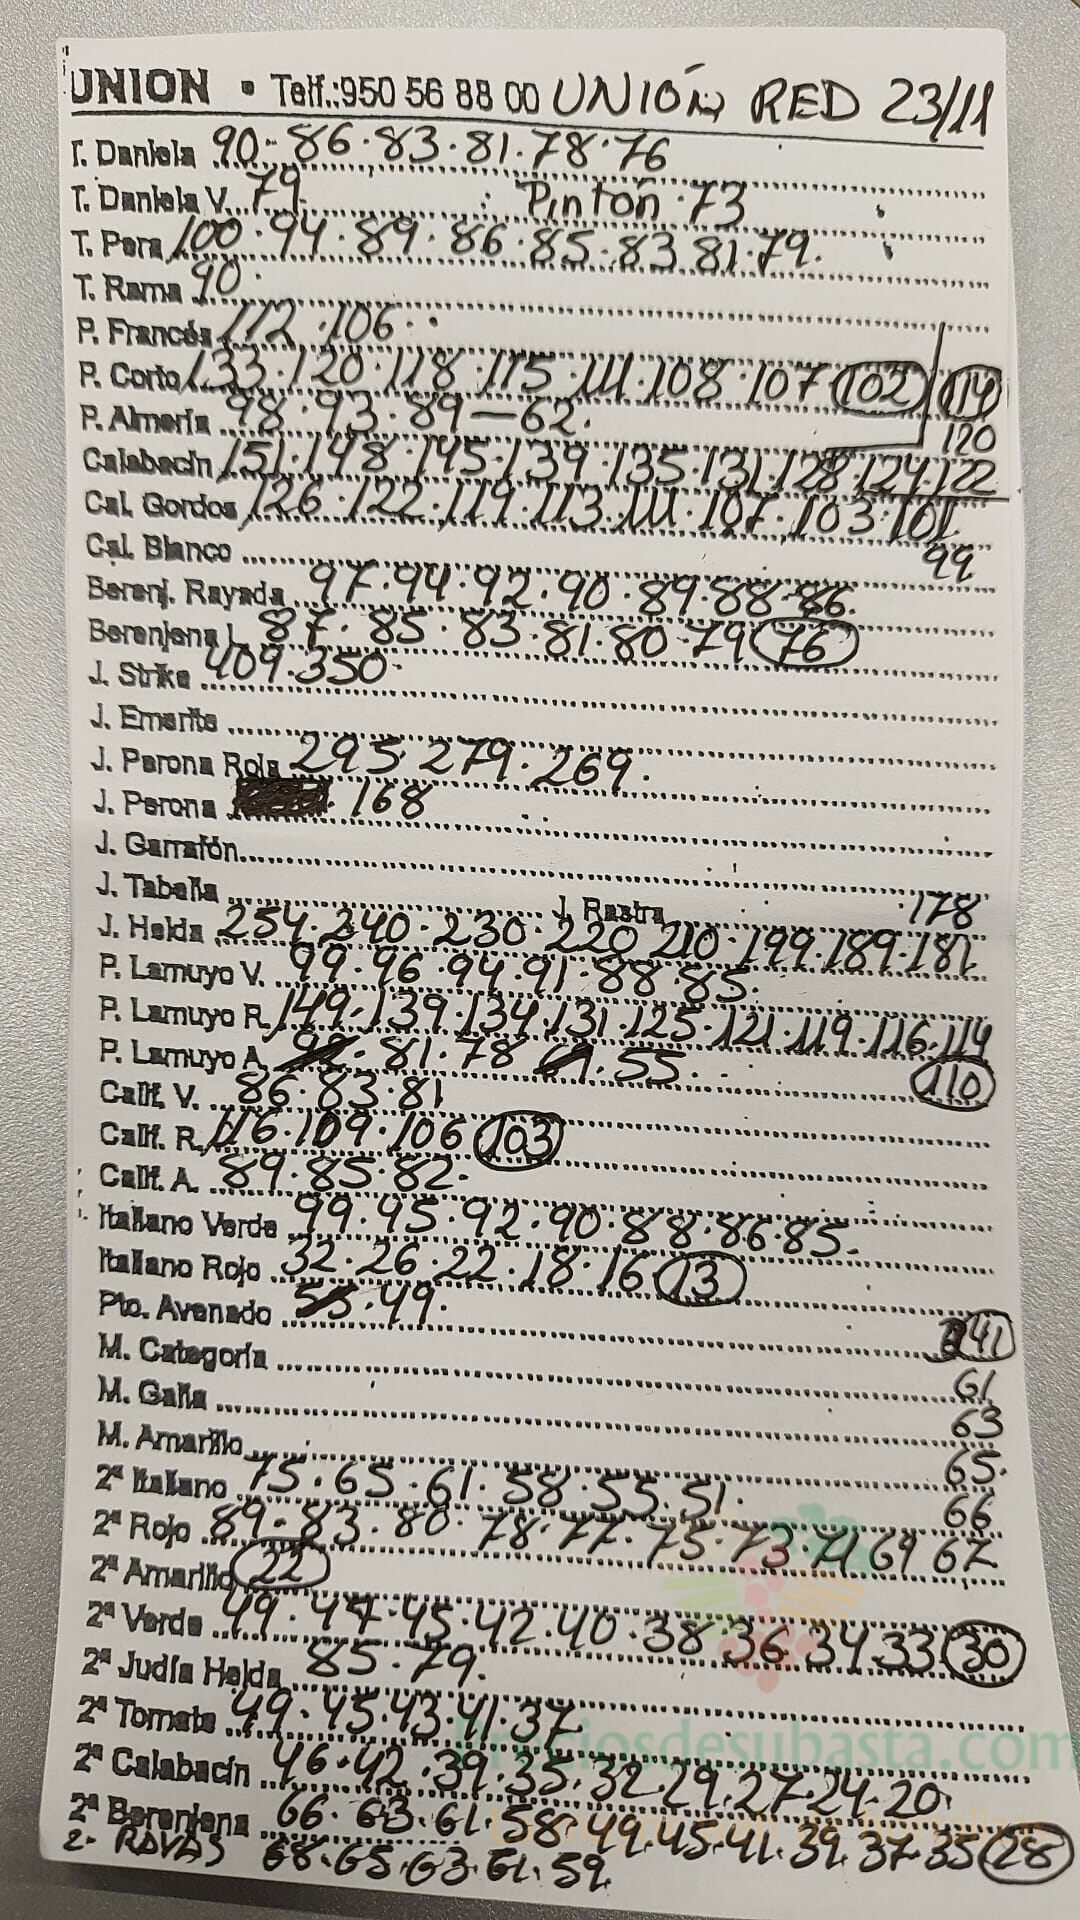 UNION • Telf.:950 56 88 00 UNIÓN RED 23/11
T. Daniela 90·86·83·81·78·76
T. Daniela V. 79 Pintón·73
T. Pera 100·94·89·86·85·83 81·79.
T. Rama 90·
P. Francés 112·106·
P. Corto 133·120·118·115·111·108·107 102 114
P. Almería 98·93·89—62. 120
Calabacín 151·148·145·139·135·131·128·124·122
Cal. Gordos 126·122·119·113·111·107·103·101
Cal. Blanco 99
Berenj. Rayada 97·94·92·90·89·88·86.
Berenjena L. 87·85·83·81·80·79 76
J. Strike 409·350
J. Emerite
J. Perona Roja 295 279·269.
J. Perona 168
J. Garrafón
J. Tabella J. Rastra 178
J. Helda 254·240·230·220 210·199·189·181
P. Lamuyo V. 99·96·94·91·88·85.
P. Lamuyo R. 149·139·134·131·125·121·119·116·114
P. Lamuyo A. 81·78 55 110
Calif. V. 86·83·81
Calif. R. 116·109·106 103
Calif. A. 89·85·82.
Italiano Verde 99·95·92·90·88·86·85.
Italiano Rojo 32·26·22·18·16 13
Pto. Avenado 49. 41
M. Categoría 61
M. Galia 63
M. Amarillo 65.
2ª Italiano 75·65·61·58·55·51· 66
2ª Rojo 89·83·80·78·77·75·73·71 69 67
2ª Amarillo 22
2ª Verde 49·47·45·42·40·38·36·34 33 30
2ª Judía Helda 85·79.
2ª Tomate 49·45·43·41·37
Preciosdesubasta.com
2ª Calabacín 46·42·39·35·32·29·27·24·20.
2ª Berenjena 66·63·61·58·49·45·41·39·37·35 28
2ª RAYAS 68·65·63·61·59.